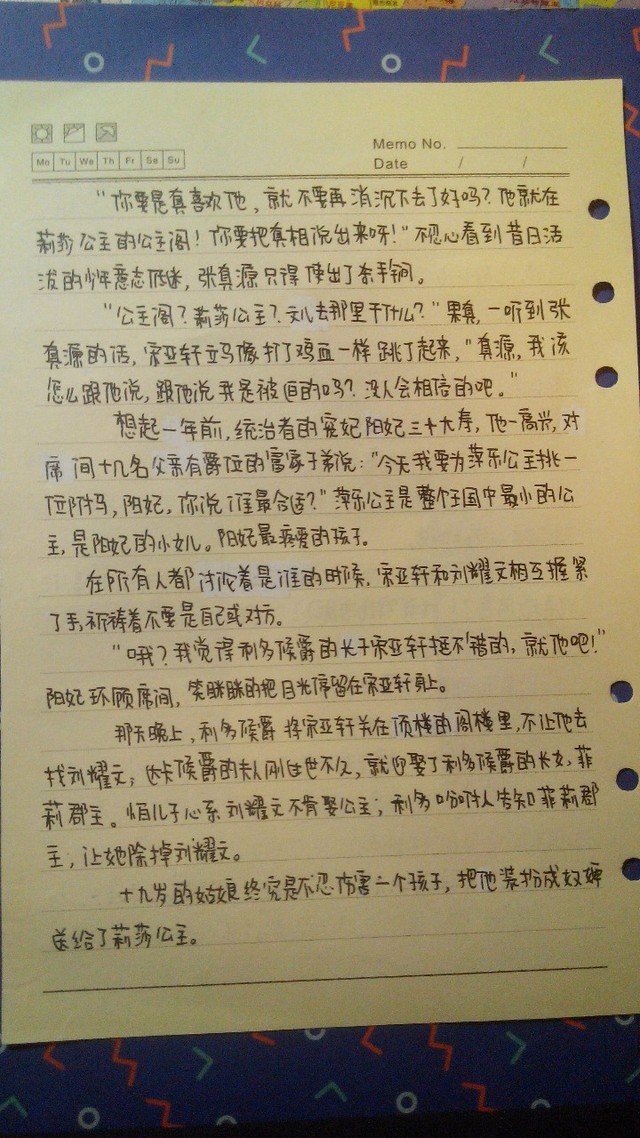 Memo No.
Mo Tu We Th Fr Sa Su
Date / /
“你要是真喜欢他，就不要再消沉下去了好吗？他就在
莉莎公主的公主阁！你要把真相说出来呀！”不忍心看到昔日活
泼的少年意志低迷，张真源只得使出了杀手锏。
“公主阁？莉莎公主？文儿去那里干什么？”果真，一听到张
真源的话，宋亚轩立马像打了鸡血一样跳了起来，“真源，我该
怎么跟他说，跟他说我是被迫的吗？没人会相信的吧。”
想起一年前，统治者的宠妃阳妃三十大寿，他一高兴，对
席间十几名父亲有爵位的富家子弟说：“今天我要为萍乐公主挑一
位附马，阳妃，你说谁最合适？”萍乐公主是整个王国中最小的公
主，是阳妃的小女儿。阳妃最疼爱的孩子。
在所有人都讨论着是谁的时候，宋亚轩和刘耀文相互握紧
了手，祈祷着不要是自己或对方。
“哦？我觉得利多侯爵的长子宋亚轩挺不错的，就他吧！”
阳妃环顾席间，笑眯眯的把目光停留在宋亚轩身上。
那天晚上，利多侯爵将宋亚轩关在顶楼的阁楼里，不让他去
找刘耀文；达卡侯爵的夫人刚过世不久，就迎娶了利多侯爵的长女，菲
莉郡主。怕儿子心系刘耀文不肯娶公主；利多吩咐人告知菲莉郡
主，让她除掉刘耀文。
十九岁的姑娘终究是不忍伤害一个孩子，把他装扮成奴婢
送给了莉莎公主。